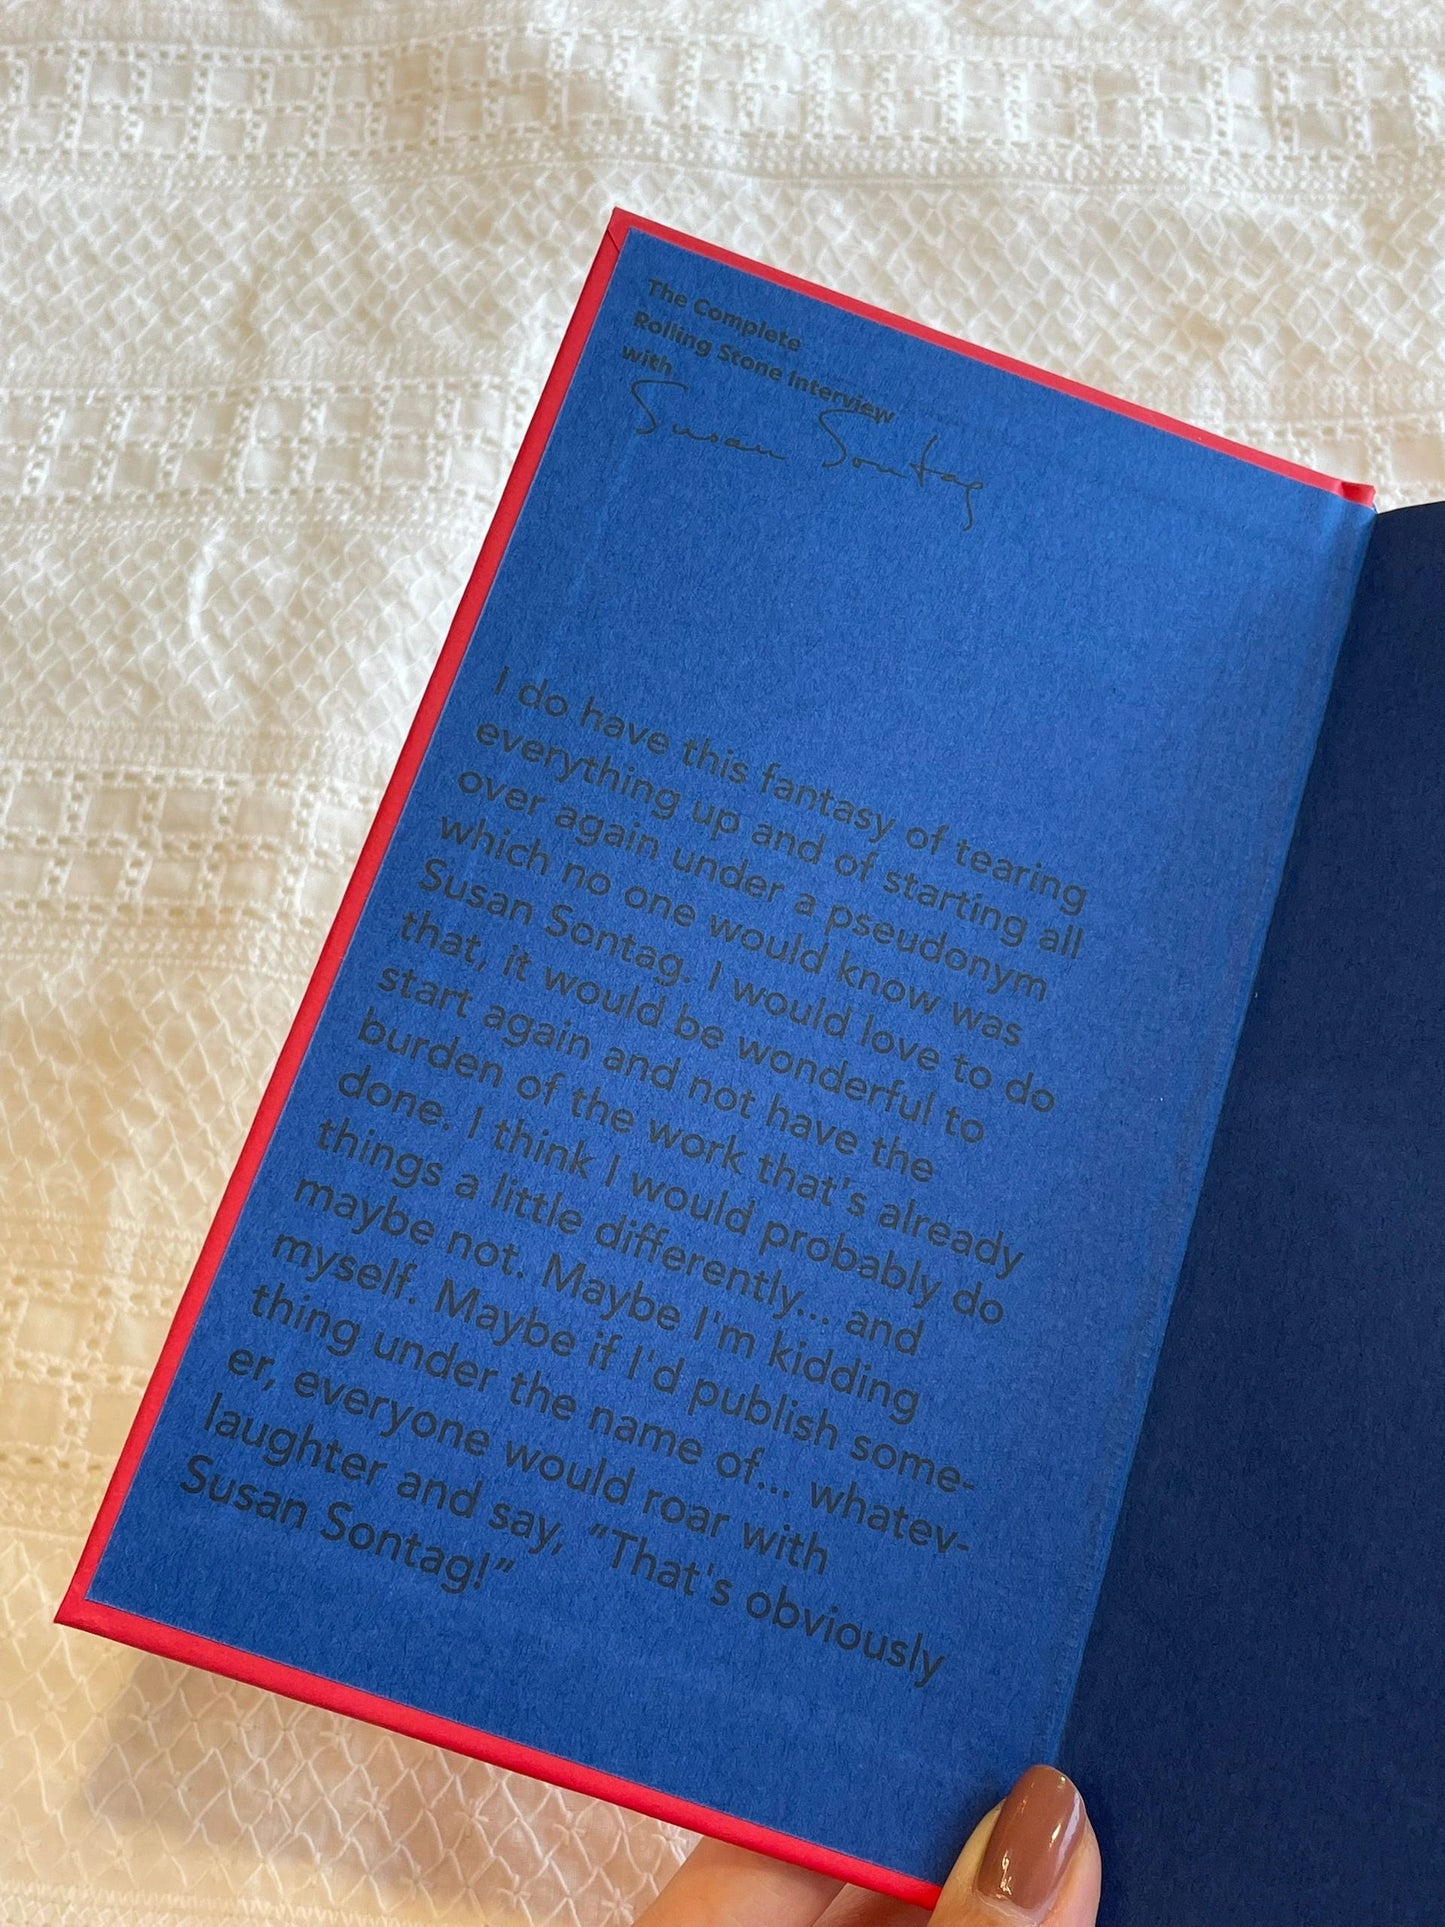 The Complete
Rolling Stone Interview
with
Susan Sontag
I do have this fantasy of tearing
everything up and of starting all
over again under a pseudonym
which no one would know was
Susan Sontag. I would love to do
that, it would be wonderful to
start again and not have the
burden of the work that's already
done. I think I would probably do
things a little differently... and
maybe not. Maybe I'm kidding
myself. Maybe if I'd publish some-
thing under the name of... whatev-
er, everyone would roar with
laughter and say, “That's obviously
Susan Sontag!”